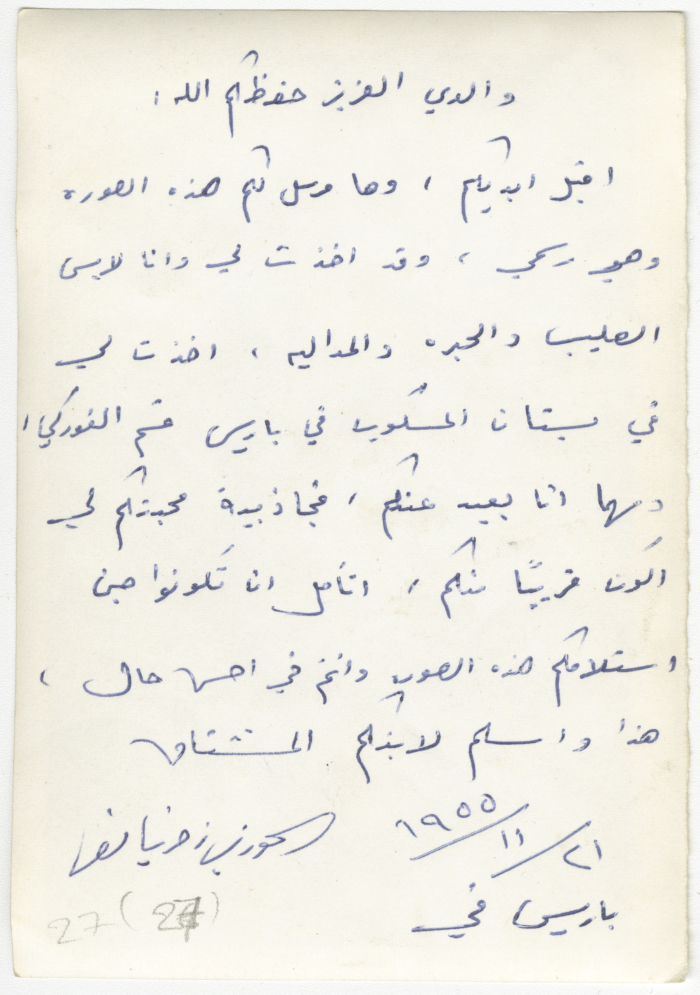 والدي العزيز حفظكم الله :
اقبل ايديكم ، وها مرسل لكم هذه الصوره
وهي رسمي ، وقد اخذت لي وانا لابس
الصليب والجبه والمداليه ، اخذت لي
في بستان المسكوب في باريس قسم
ومهما انا بعيد عنكم ، فجاذبية محبتكم لي
اكون قريبًا منكم ، اتأمل ان تكونوا حين
استلامكم هذه الصوره وانتم في احسن حال ،
هذا واسلم لابنكم المشتاق
الخوري
٢١/١١/١٩٥٥
باريس في
27 (27)